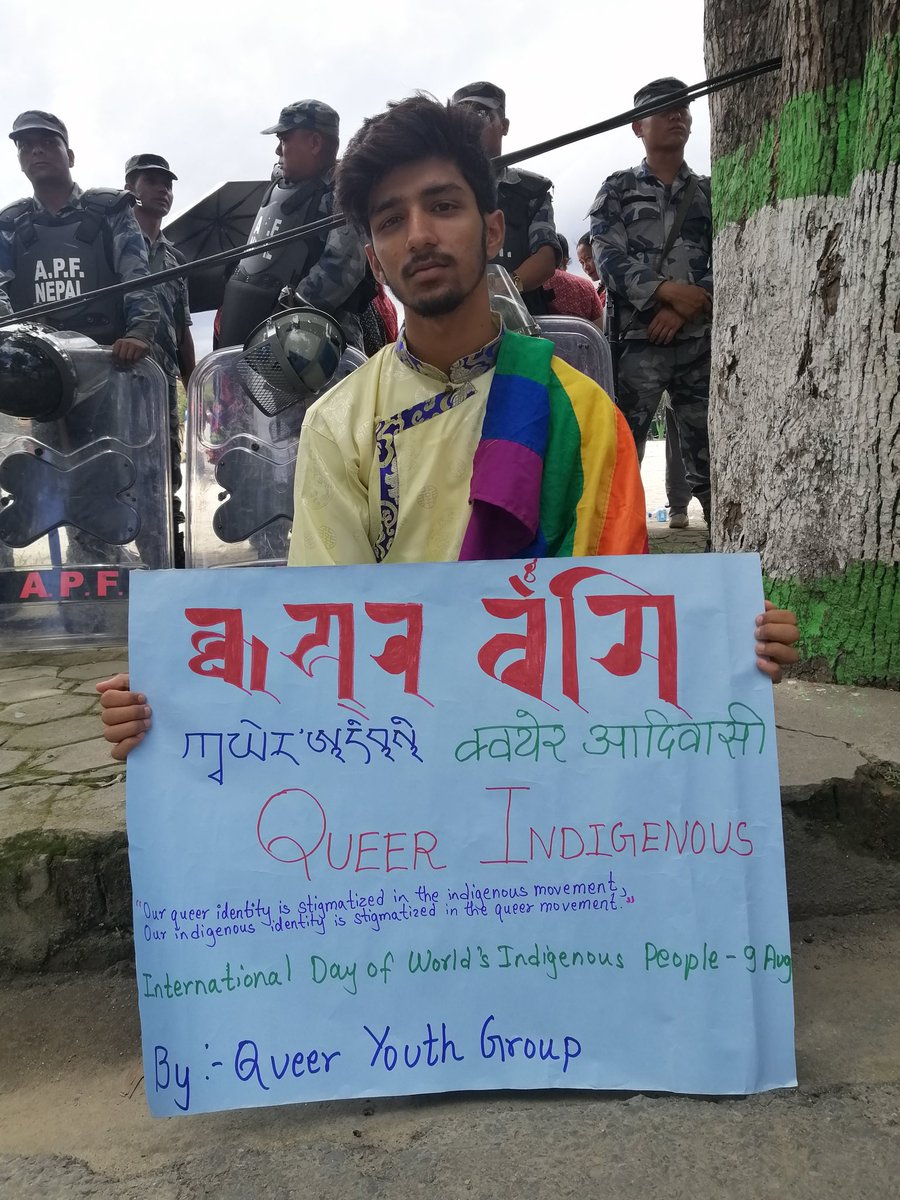 A.P.F.
NEPAL
A.P.F.
A.P.F.
क्वयेर आदिवासी
QUEER INDIGENOUS
"Our queer identity is stigmatized in the indigenous movement,
Our indigenous identity is stigmatized in the queer movement."
International Day of World's Indigenous People - 9 Aug
By :- Queer Youth Group